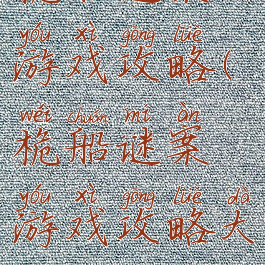 yóu xì gōng lüè
游戏攻略(
wéi chuán mí àn
桅船谜案
yóu xì gōng lüè dà
游戏攻略大